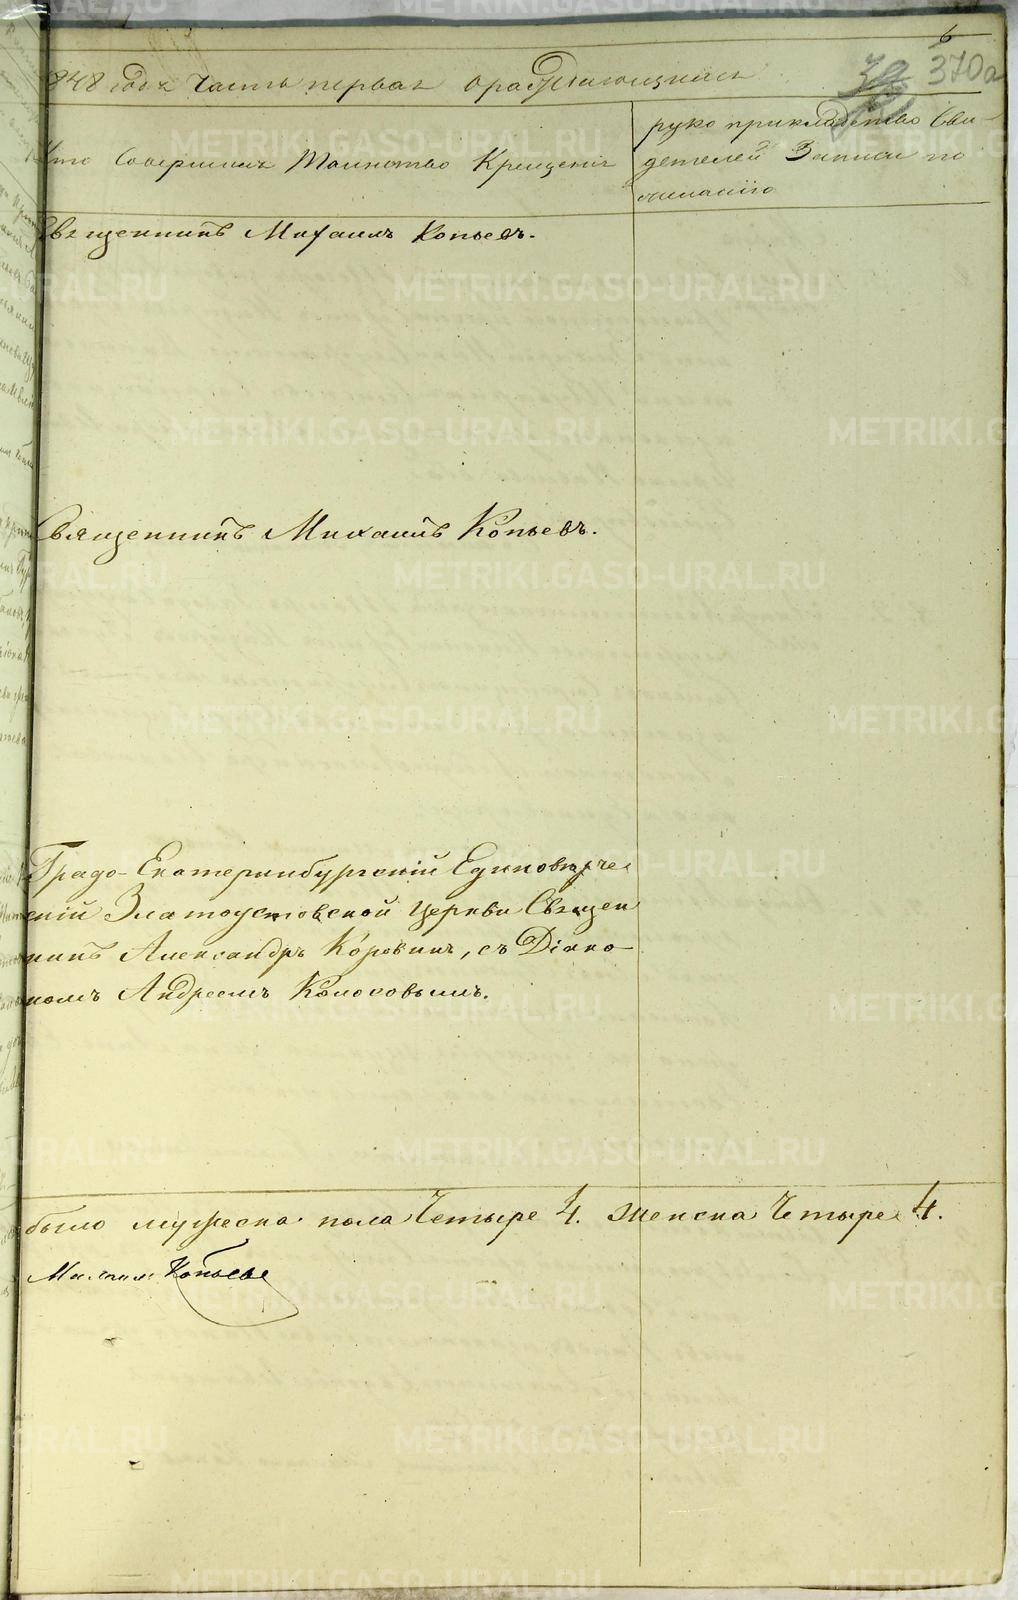 6
370а
1848 года Часть первая о раждающихся
Кто Совершилъ Таинство Крещенія
руко прикладство Сви-
детелей Записи по
желанію
Священникъ Михаилъ Копьевъ.
Священникъ Михаилъ Копьевъ.
Градо-Екатеринбургскій Единовѣрче
скій Златоустовской Церкви Священ
никъ Александръ Коровинъ, съ Діако-
номъ Андреемъ Колосовымъ.
было мужеска пола Четыре 4. женска Четыре 4.
Михаилъ Копьевъ
METRIKI.GASO-URAL.RU